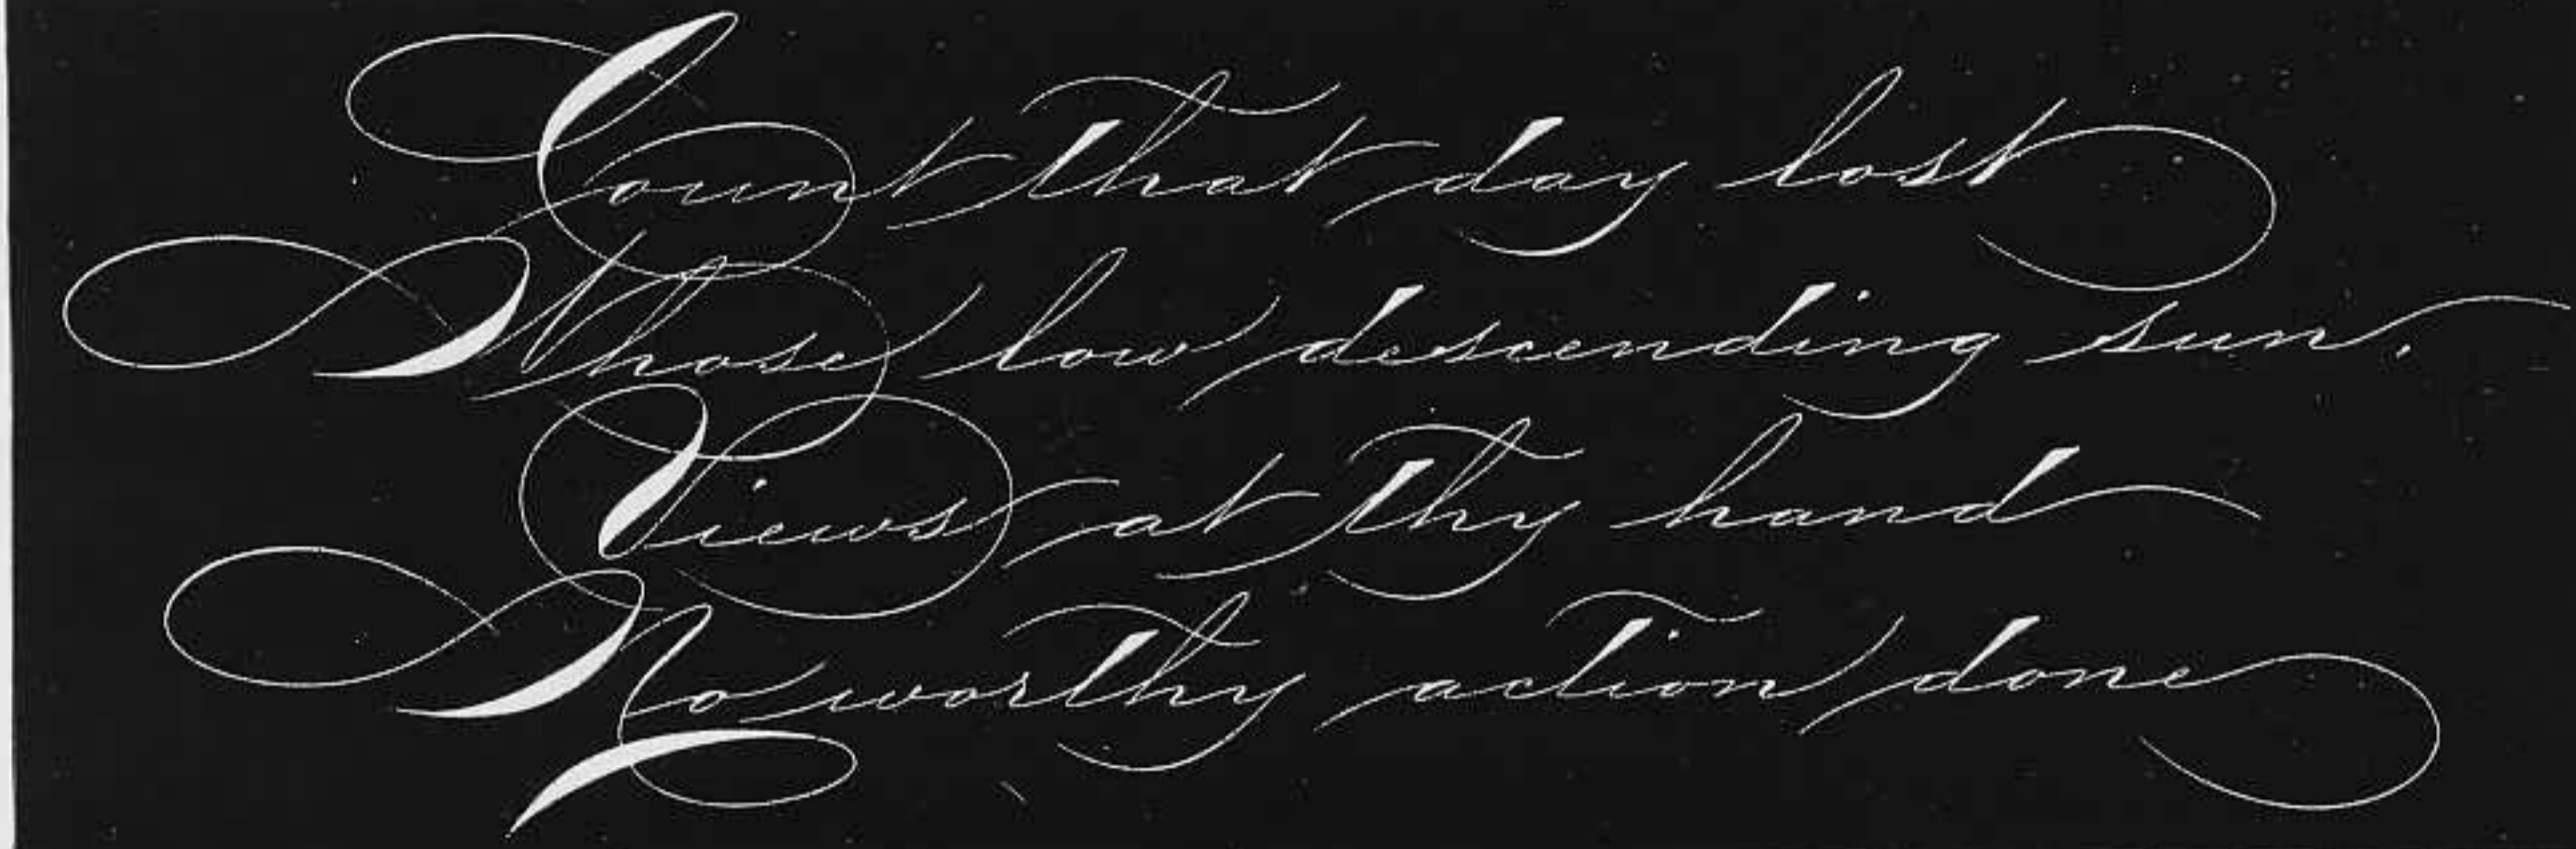 Count that day lost
Whose low descending sun.
Views at thy hand
No worthy action done